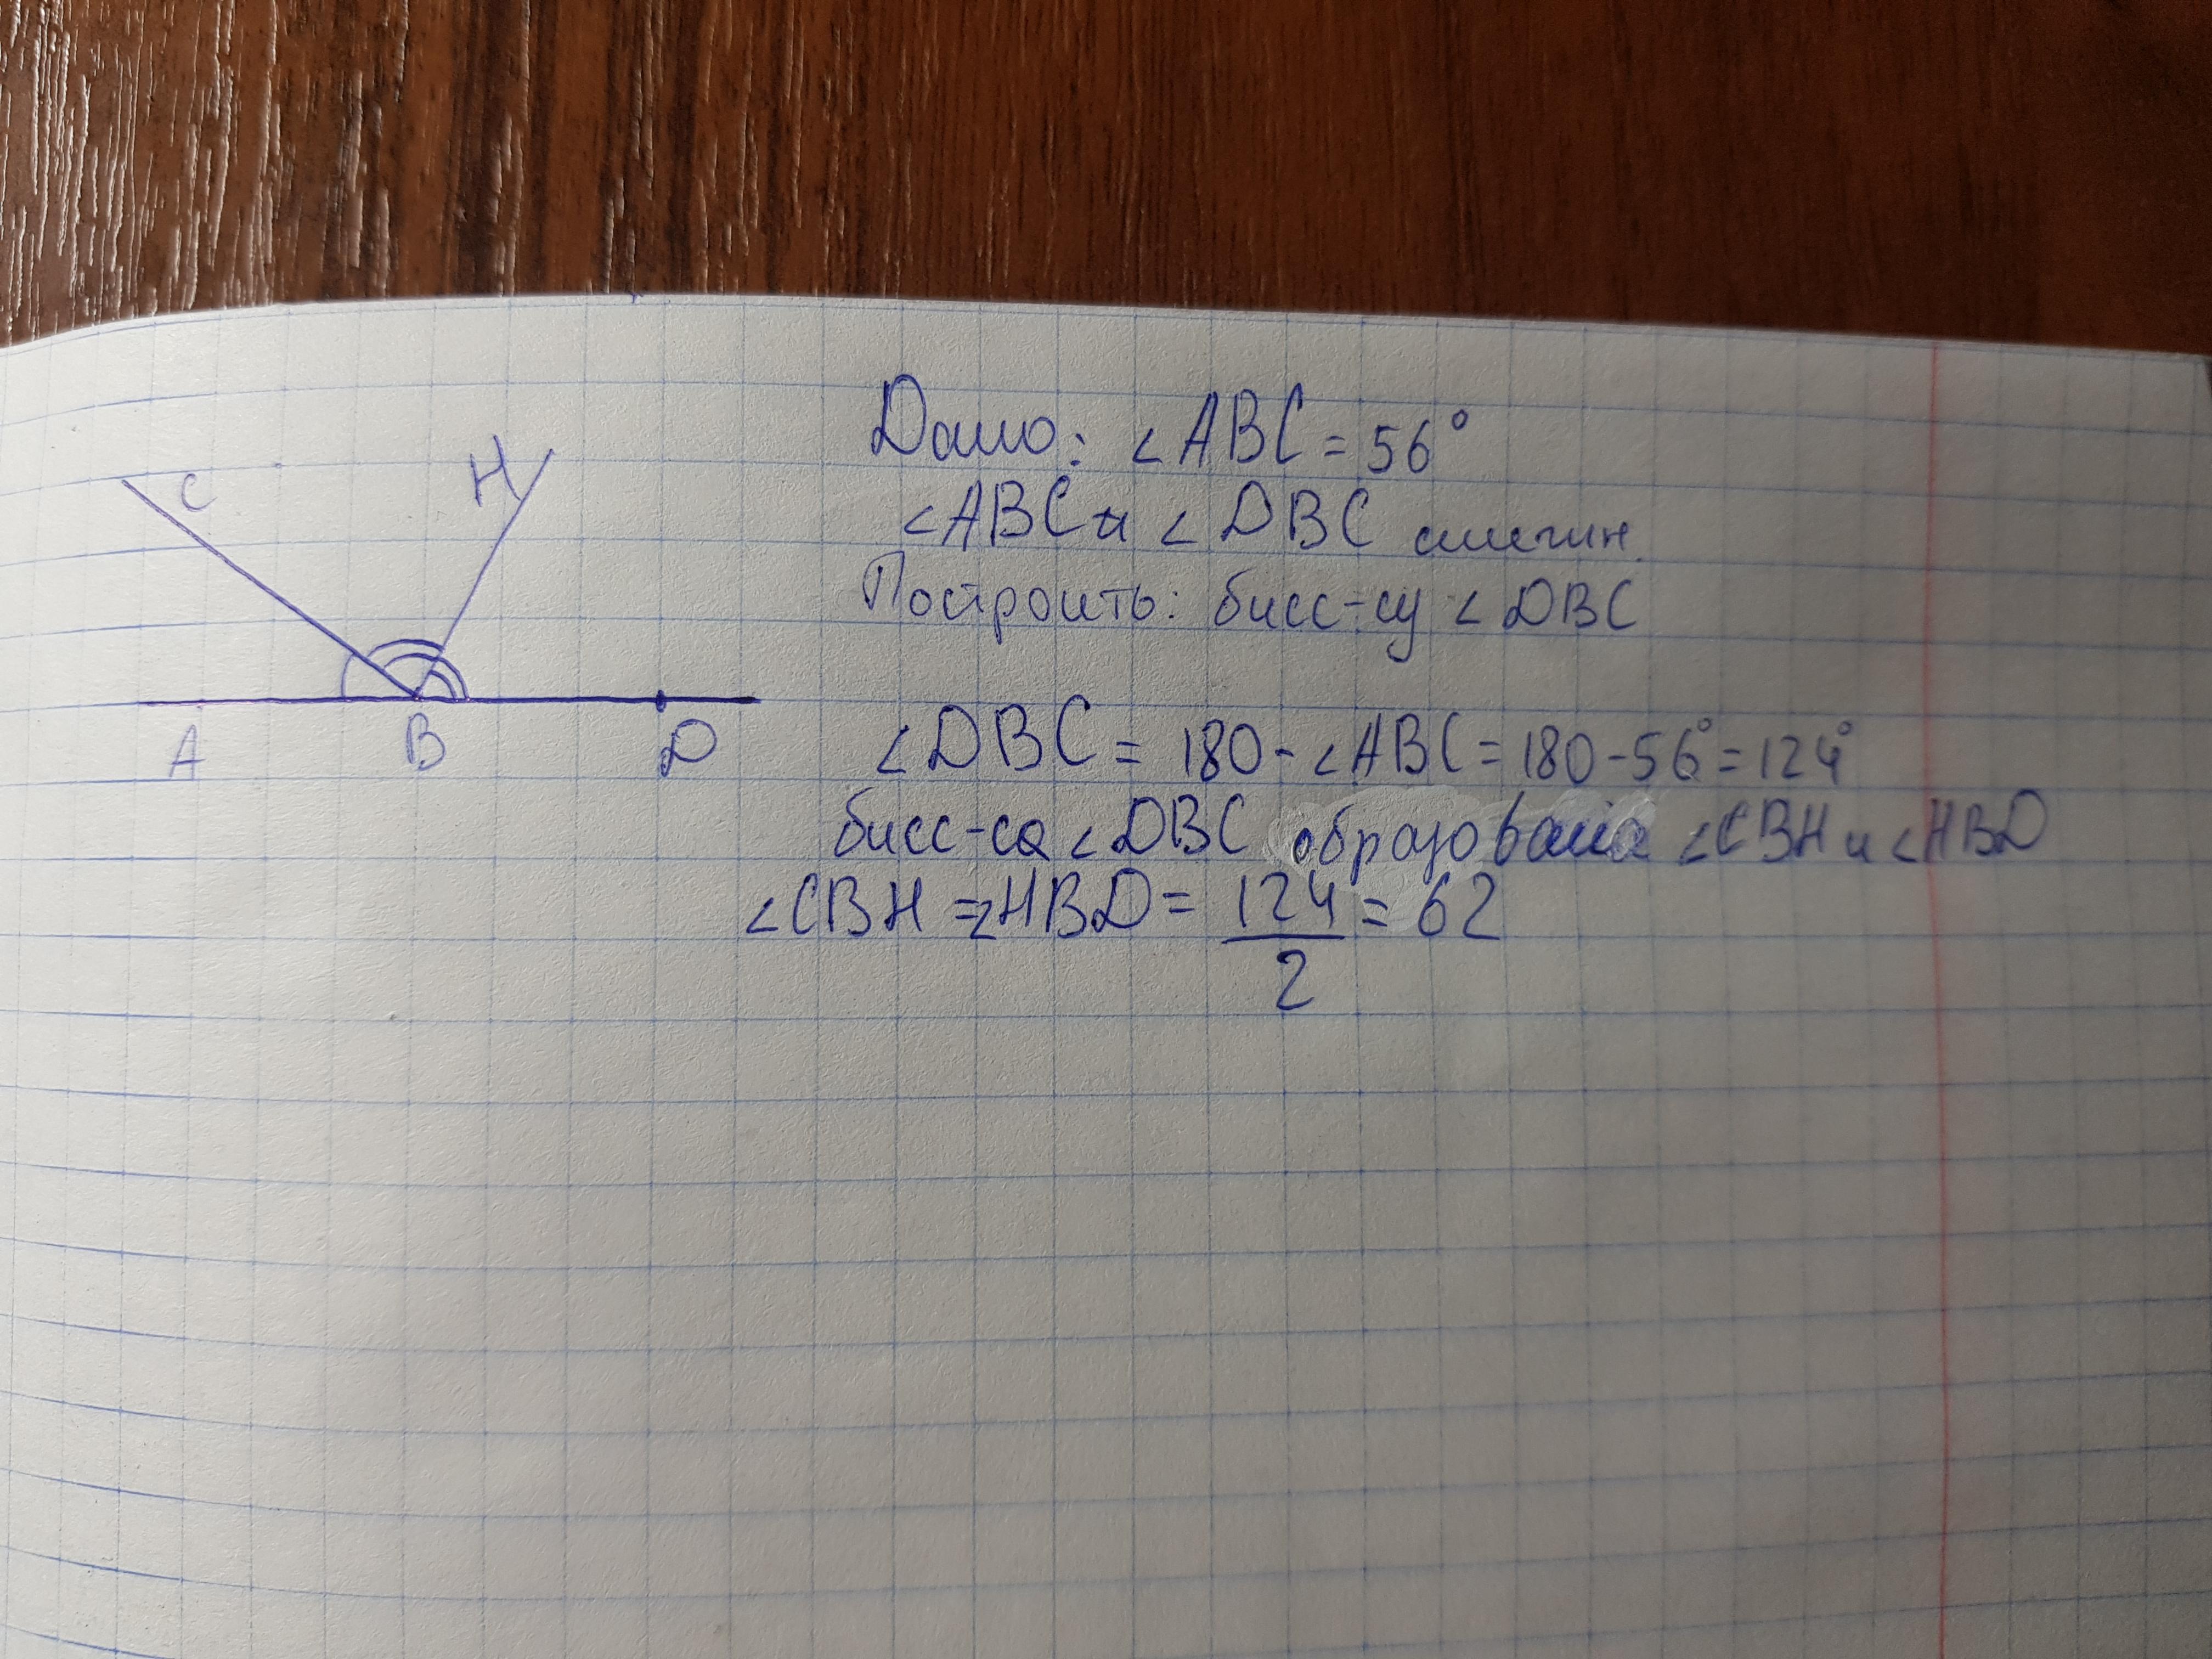 Дано: ∠ABC = 56°
∠ABC и ∠DBC смежн.
Построить: бисс-су ∠DBC
C H
A B D
∠DBC = 180 - ∠ABC = 180 - 56° = 124°
бисс-са ∠DBC образовала ∠CBH и ∠HBD
∠CBH = ∠HBD = 124/2 = 62